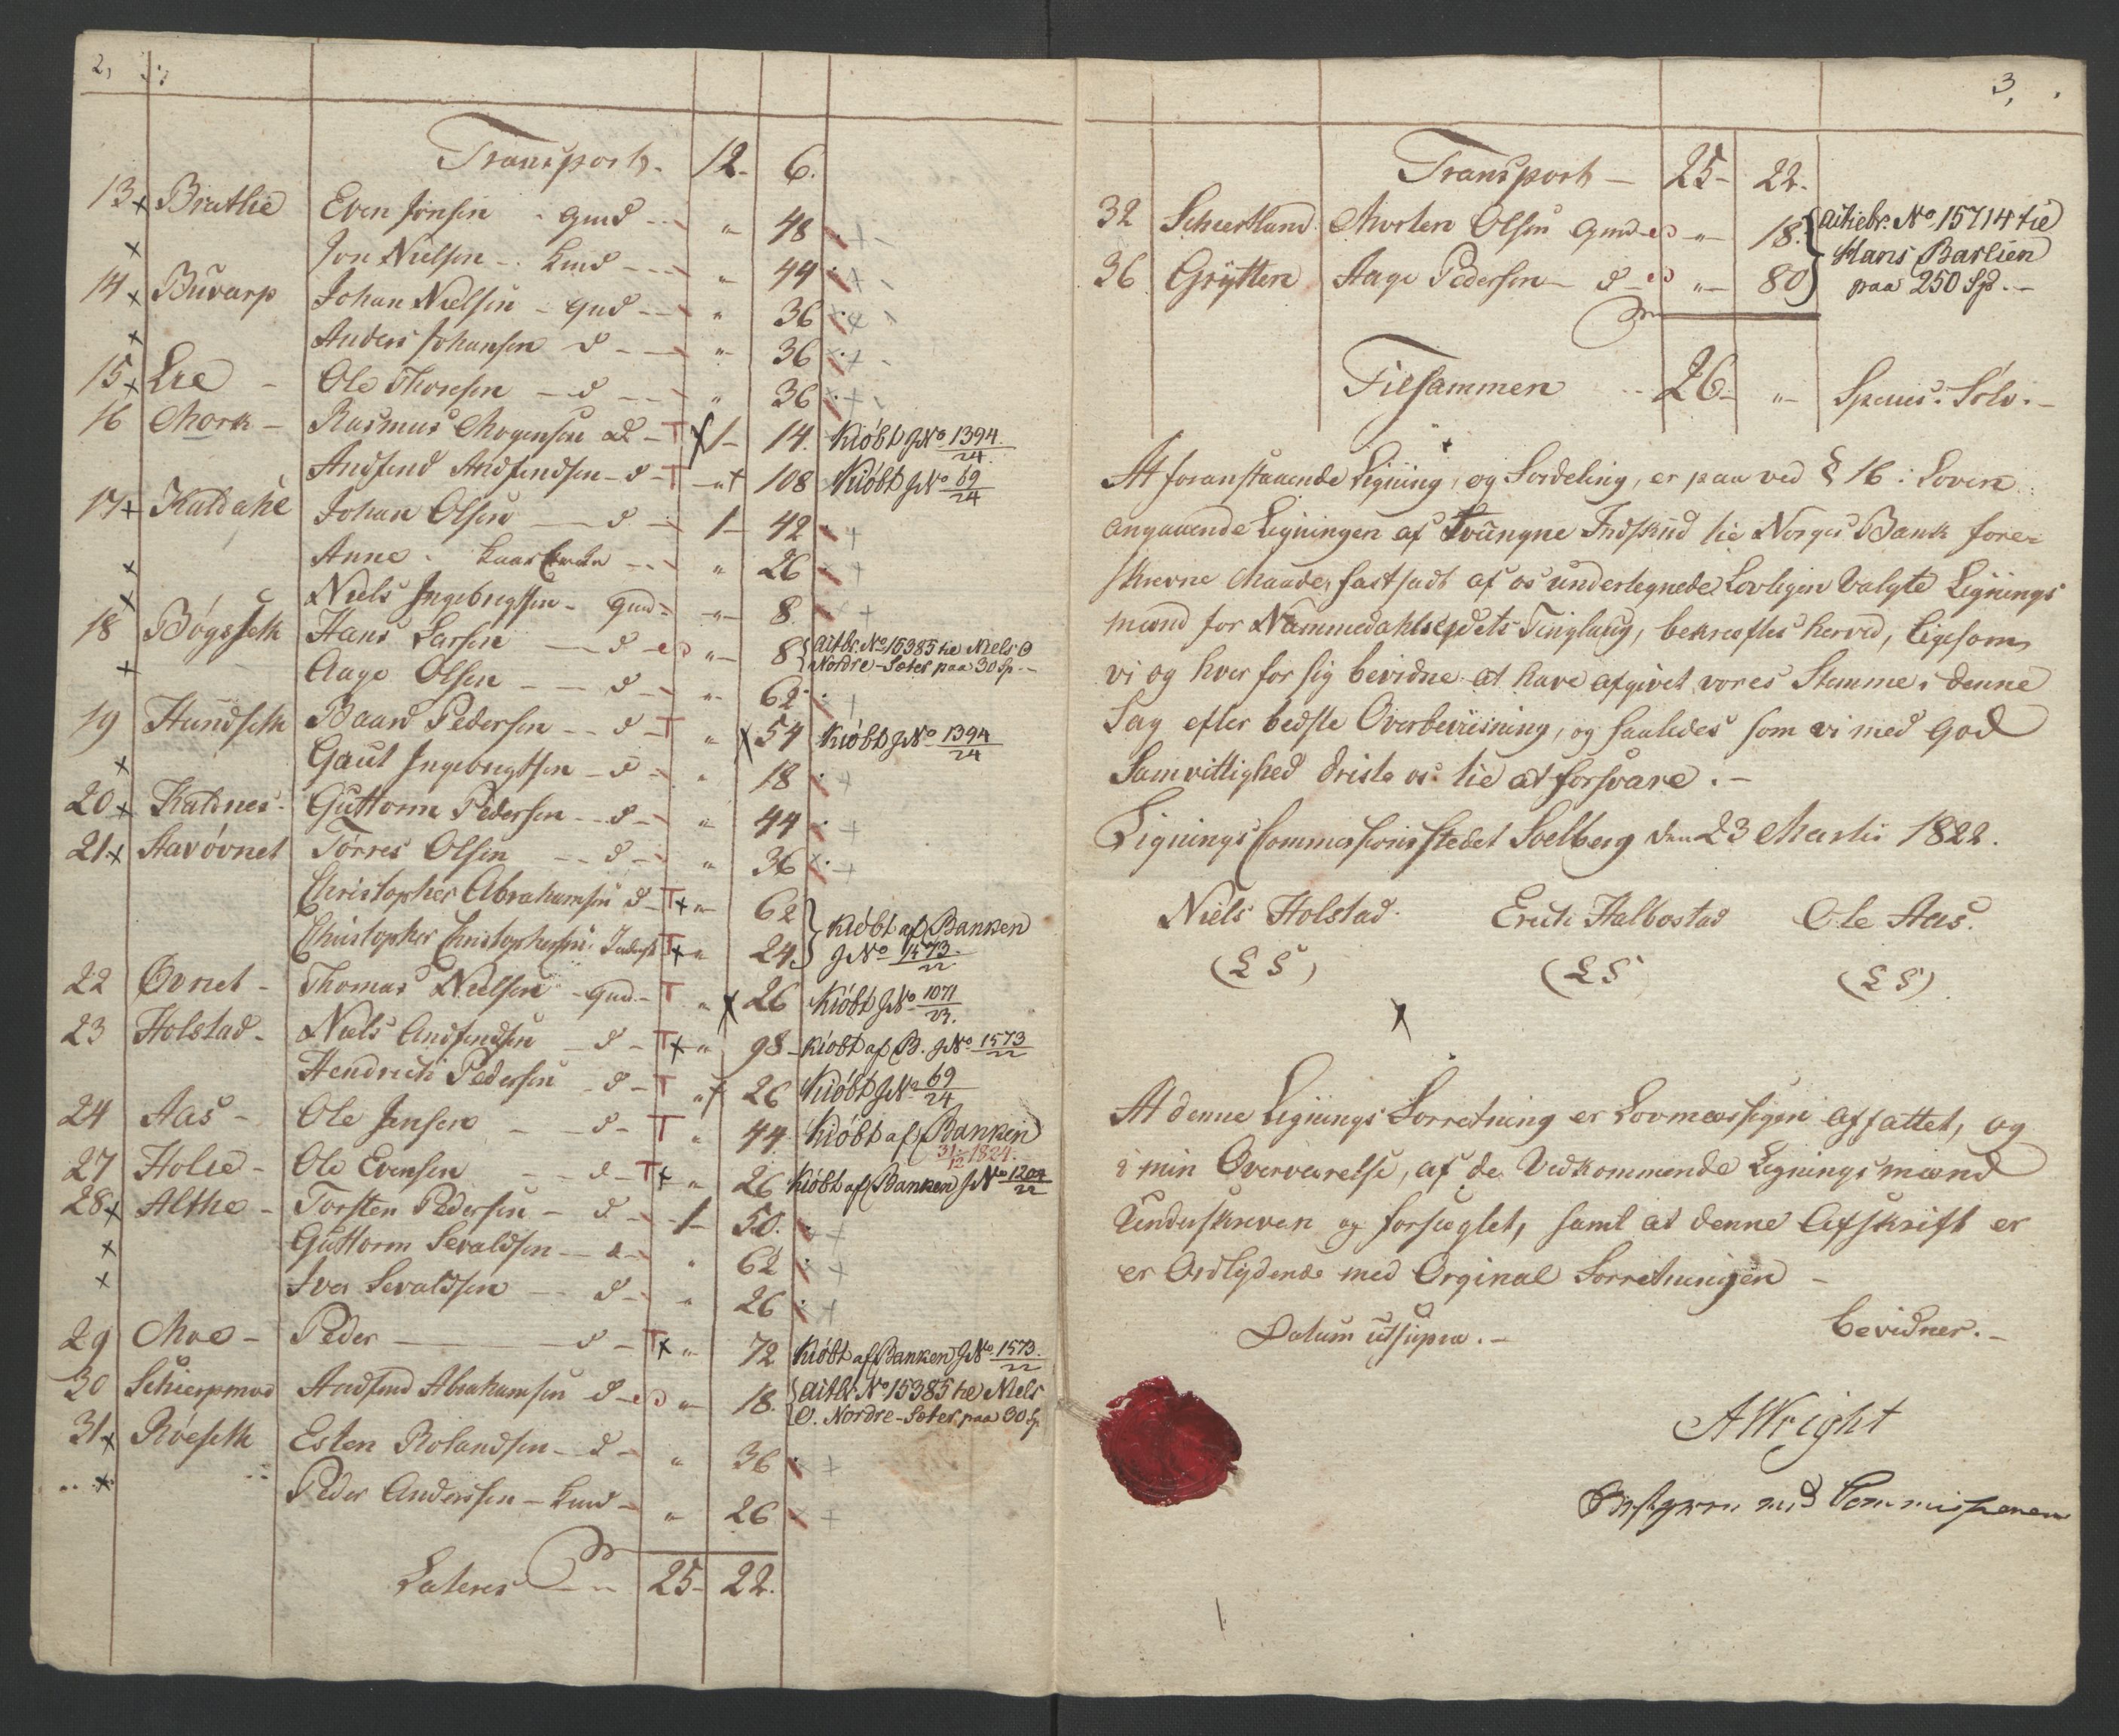 2,
Transport. 12- 6.
13 Brathie Even Jonsen - Gmd - " 48
Jon Nielsen - Kmd - " 44
14 Buvarp Johan Nielsen - Gmd - " 36
Anders Johansen d - " 36
15 Lie - Ole Thoresen - d - " 36
16 Mork - Rasmus Mogensen d - T 1- 14. Kiöbt JNo 1394/24
Andfind Andfindsen - d - T " 108 Kiöbt JNo 69/24
17 Kaldahl Johan Olsen - d - 1- 42
Anne - " 26
Niels Ingebregtsen - Gmd - " 8.
18 Bögsseth Hans Larsen - d - " 8 { Actbr. No 15385 tie Niels O
Nordre-Sæter paa 30 Sp. -
Aage Olsen - d - " 62
19 Hundseth Baard Pedersen - d - T " 54 Kiöbt JNo 1394/24
Gaut Ingebregtsen - d - " 18
20 Kaldnes - Guttorm Pedersen - d - " 44
21 Aavövnet Törres Olsen - d - " 36
Christopher Abrahamsen d - T " 62 } Kiöbt af Banken
Christopher Christophersen T " 24 } JNo 1573/22
22 Övnet - Thomas Nielsen - Gmd - T " 26 Kiöbt JNo 1071/23.
23 Holstad - Niels Andfindsen - d - T " 98 - Kiöbt af B. JNo 1573/22
Hendrich Pedersen - d - T " 26 Kiöbt JNo 69/24
24 Aas - Ole Jensen - d - T " 44. Kiöbt af Banken
31/12 1824.
27 Holie - Ole Evensen - d - T " 26 Kiöbt af Banken JNo 1204/22
28 Althe - Torsten Pedersen - d - 1- 50.
Guttorm Sevaldsen - d - " 62
Iver Sevaldsen - d - " 26
29 Moe - Peder - d - T " 72 Kiöbt af Banken JNo 1573/22
30 Schierpmoe Andfind Abrahamsen d - " 18. { Actbr No 15385 tie Niels
O. Nordre-Sæter paa 30 Sp
31 Röeseth Esten Rolandsen - d - " 36
Peder Anderssen - Kmd - " 26
Lateres - 25- 22.
3,
Transport - 25- 22.
32 Scheertland Morten Olsen Gmd - " 18. } Actiebr. No 15714 tie
36 Grÿtten Aage Pedersen - d - " 80 } Hans Barlien
paa 250 Spd. -
Tilsammen - 26- " Specie Sölv. -
At foranstaaende Ligning, og Fordeling, er paa ved § 16: Loven
angaaende Ligningen af Tvungne Indskud tie Norges Bank fore-
skrevne Maade, fastsadt af os undertegnede Lovligen Valgte Lignings
mænd for Nammedahlseÿdets Tinglaug, bekræftes herved, ligesom
vi og hver for sig bevidne at have afgivet vores Stemme i denne
Sag efter bedste Overbeviisning, og saaledes som vi med God
Samvittighed driste os tie at forsvare. -
Lignings Commissions stedet Soelberg den 23 Martii 1822.
Niels Holstad. Erich Halbostad Ole Aas.
(L S) (L S) (L S)
At denne Lignings Forretning er Lovmæssigen affattet, og
i min Overværelse, af de Vedkommende Ligningsmænd
Underskreven og forseglet, samt at denne Afskrift er
er Ordlydende med Orginal Forretningen -
Datum utsupra. - bevidner. -
AWright
Bestyrer ved Commissionen